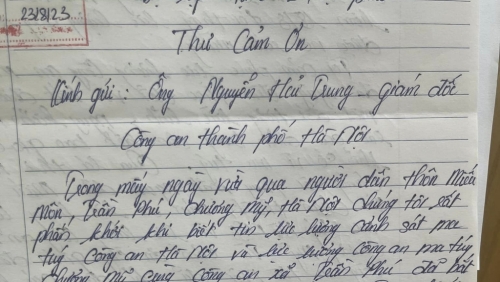 23/8/23
Thư Cảm Ơn
Kính gửi: Ông Nguyễn Hải Trung - giám đốc
Công an thành phố Hà Nội
Trong mấy ngày vừa qua người dân thôn
Môn, Trần Phú, Chương Mỹ, Hà Nội chúng tôi rất
phấn khởi khi biết tin lực lượng cảnh sát ma
túy Công an Hà Nội và lực lượng công an ma túy
Chương Mỹ cùng công an xã Trần Phú đã bắt